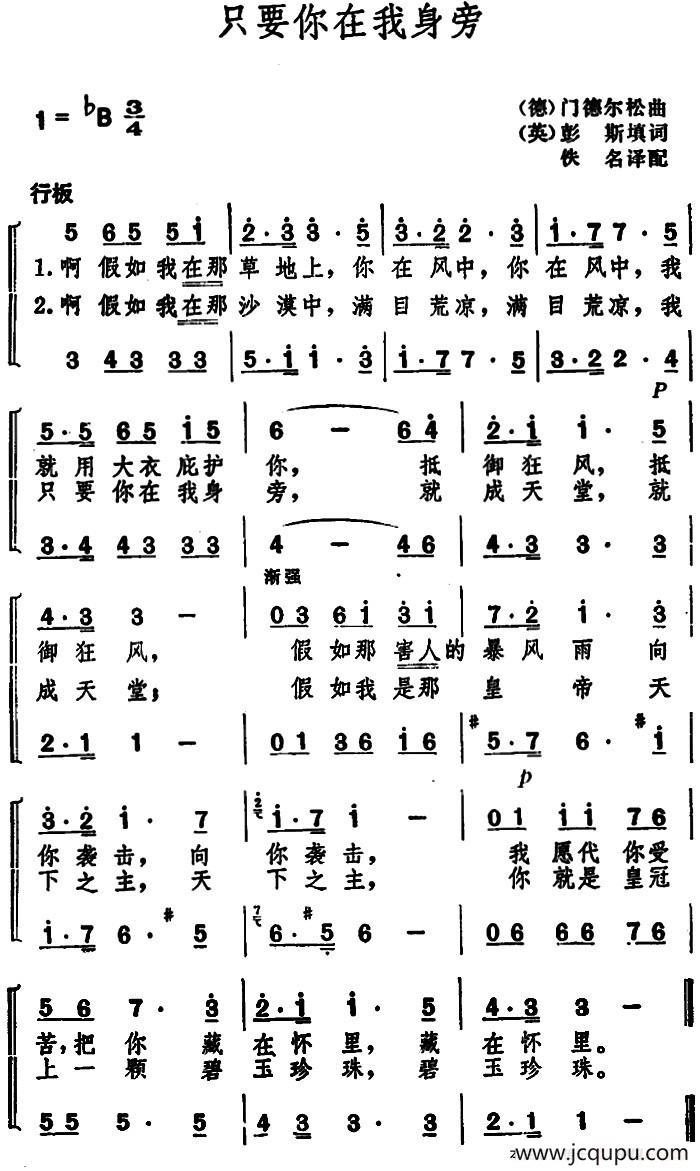 只要你在我身旁
1= ♭B 3/4
(德)门德尔松曲
(英)彭 斯填词
佚 名译配
行板
5 65 5i 2·3 3·5 3·2 2·3 1·7 7·5
1.啊 假如我在那 草地上,你 在风中,你 在风中,我
2.啊 假如我在那 沙漠中,满 目荒凉,满 目荒凉,我
3 43 33 5·1 1·3 1·7 7·5 3·2 2·4
P
5·5 65 i5 6 – 64 2·1 1·5
就用 大衣 庇护 你, 抵 御狂风,抵
只要 你在 我身 旁, 就 成天堂,就
3·4 43 33 4 – 46 4·3 3·3
渐强
4·3 3 – 03 6i 3i 7·2 i·3
御狂风, 假如那害人的 暴风雨向
成天堂; 假如我是那 皇帝天
2·1 1 – 01 36 i6 #5·7 6·#i
p
3·2 i·7 2 i·7 i – 01 ii 76
你袭击,向 你袭击, 我 愿代 你受
下之主,天 下之主, 你 就是 皇冠
i·7 6·#5 7 6·#5 6 – 06 66 76
56 7·3 2·i i·5 4·3 3 –
苦,把 你藏 在怀里,藏 在怀里。
上一 颗碧 玉珍珠,碧 玉珍珠。
55 5·5 43 3·3 2·1 1 –
www.jcqupu.com